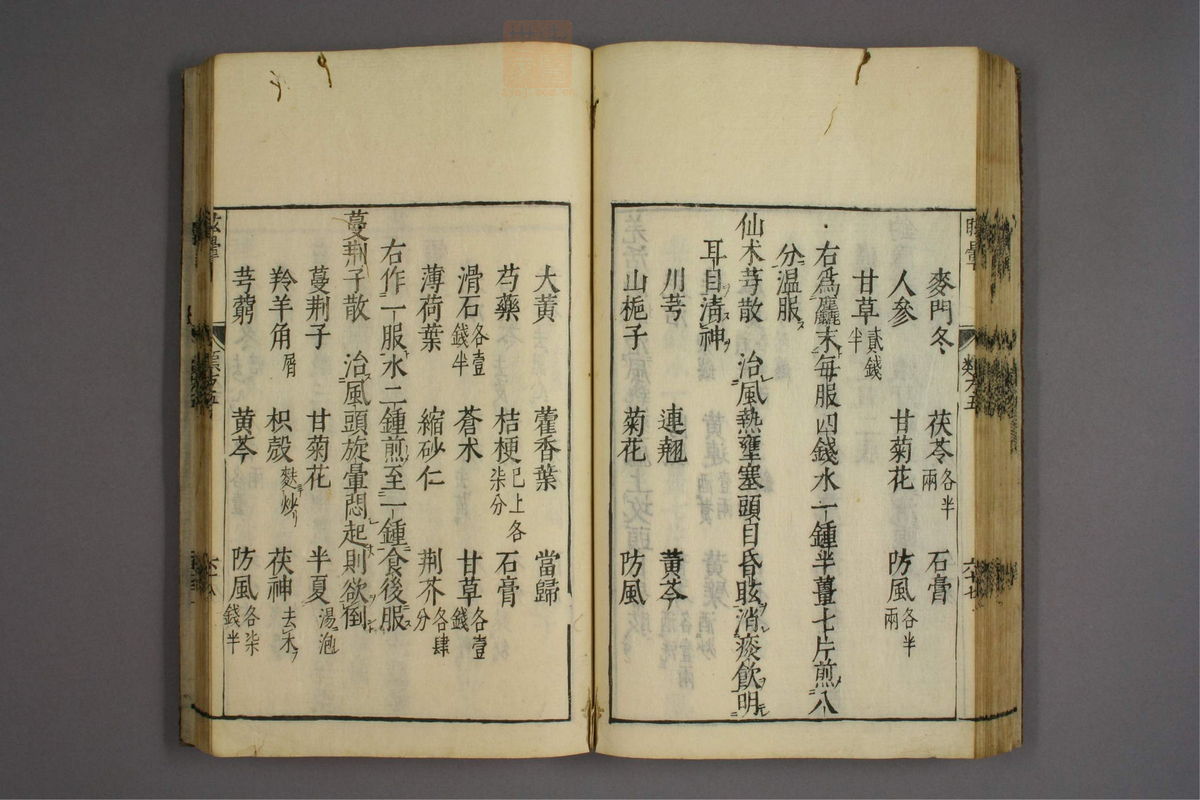 麥門冬 茯苓各半兩 石膏
人參 甘菊花 防風各半兩
甘草貳錢半
右為麤末每服四錢水一鍾半薑七片煎八
分溫服
仙朮芎散 治風熱壅塞頭目昏眩消痰飲明
耳目清神
川芎 連翹 黃芩
山梔子 菊花 防風
大黃 藿香葉 當歸
芍藥 桔梗已上各柒分 石膏
滑石各壹錢半 蒼朮 甘草各壹錢
薄荷葉 縮砂仁 荊芥各肆分
右作一服水二鍾煎至一鍾食後服
蔓荊子散 治風頭旋暈悶起則欲倒
蔓荊子 甘菊花 半夏湯泡
羚羊角屑 枳殼麩炒 茯神去木
芎藭 黃芩 防風各柒錢半